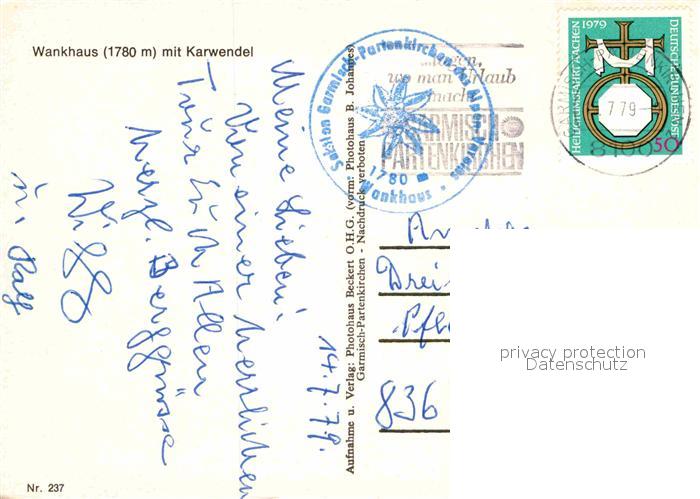 Wankhaus (1780 m) mit Karwendel
14.7.79.
Meine Lieben!
Von einer herrlichen
Tour Euch Allen
herzl. Berggrüsse
u. Ralf
Nr. 237
Aufnahme u. Verlag: Photohaus Beckert O.H.G. (vorm: Photohaus B. Johannes)
Garmisch-Partenkirchen - Nachdruck verboten
Sektion Garmisch-Partenkirchen des Alpen-Vereins
1780 m
Wankhaus
wo man Urlaub
macht
GARMISCH
PARTENKIRCHEN
HEILIGTUMSFAHRT AACHEN 1979
DEUTSCHE BUNDESPOST
50
7.79
8100
Drei
836
privacy protection
Datenschutz